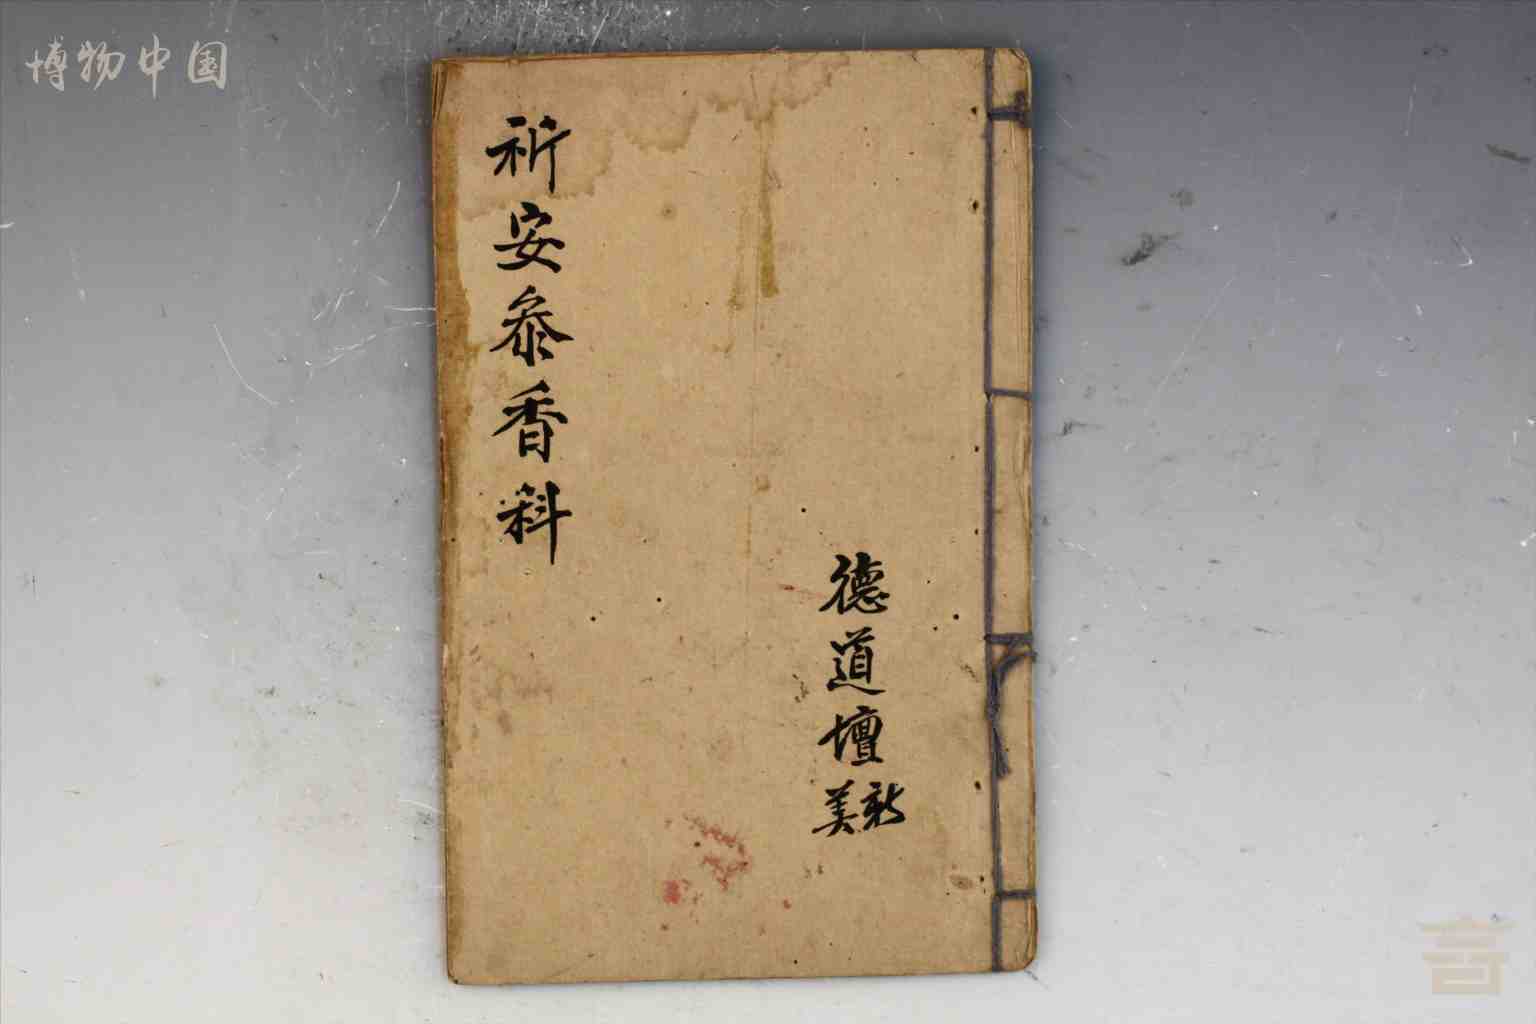 博物中国
德道壇
美
祈安参香科